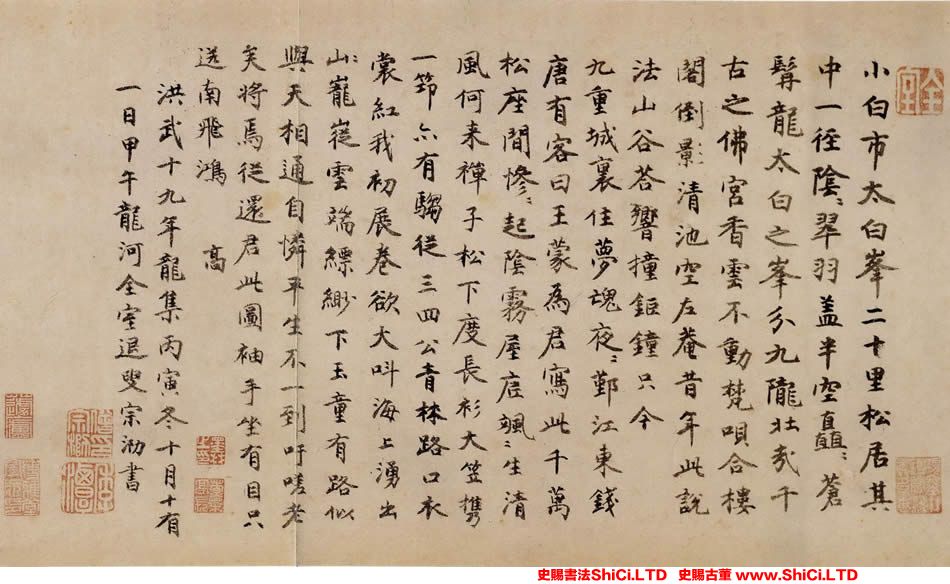 小白市太白峯二十里松居其
中一径陰〻翠羽盖半空直〻蒼
髯龍太白之峯分九隴壯哉千
古之佛宮香雲不動梵唄合樓
閣倒影清池空左菴昔年此說
法山谷荅響撞鉅鐘只今
九重城裏住夢魂夜〻鄞江東錢
唐有客曰王蒙為君寫此千萬
松座間慘〻起陰霧屋底颯〻生清
風何来禅子松下度長衫大笠携
一笻亦有騶從三四公青林路口衣
裳紅我初展卷欲大呌海上湧出
山巃嵸雲端縹緲下玉童有路似
與天相通自憐平生不一到吁嗟老
矣將焉從還君此圖袖手坐有目只
送南飛鴻
洪武十九年龍集丙寅冬十月十有
一日甲午龍河全室退叟宗泐書
全室
宗泐
史賜書法ShiCi.LTD 史賜古董 www.ShiCi.LTD